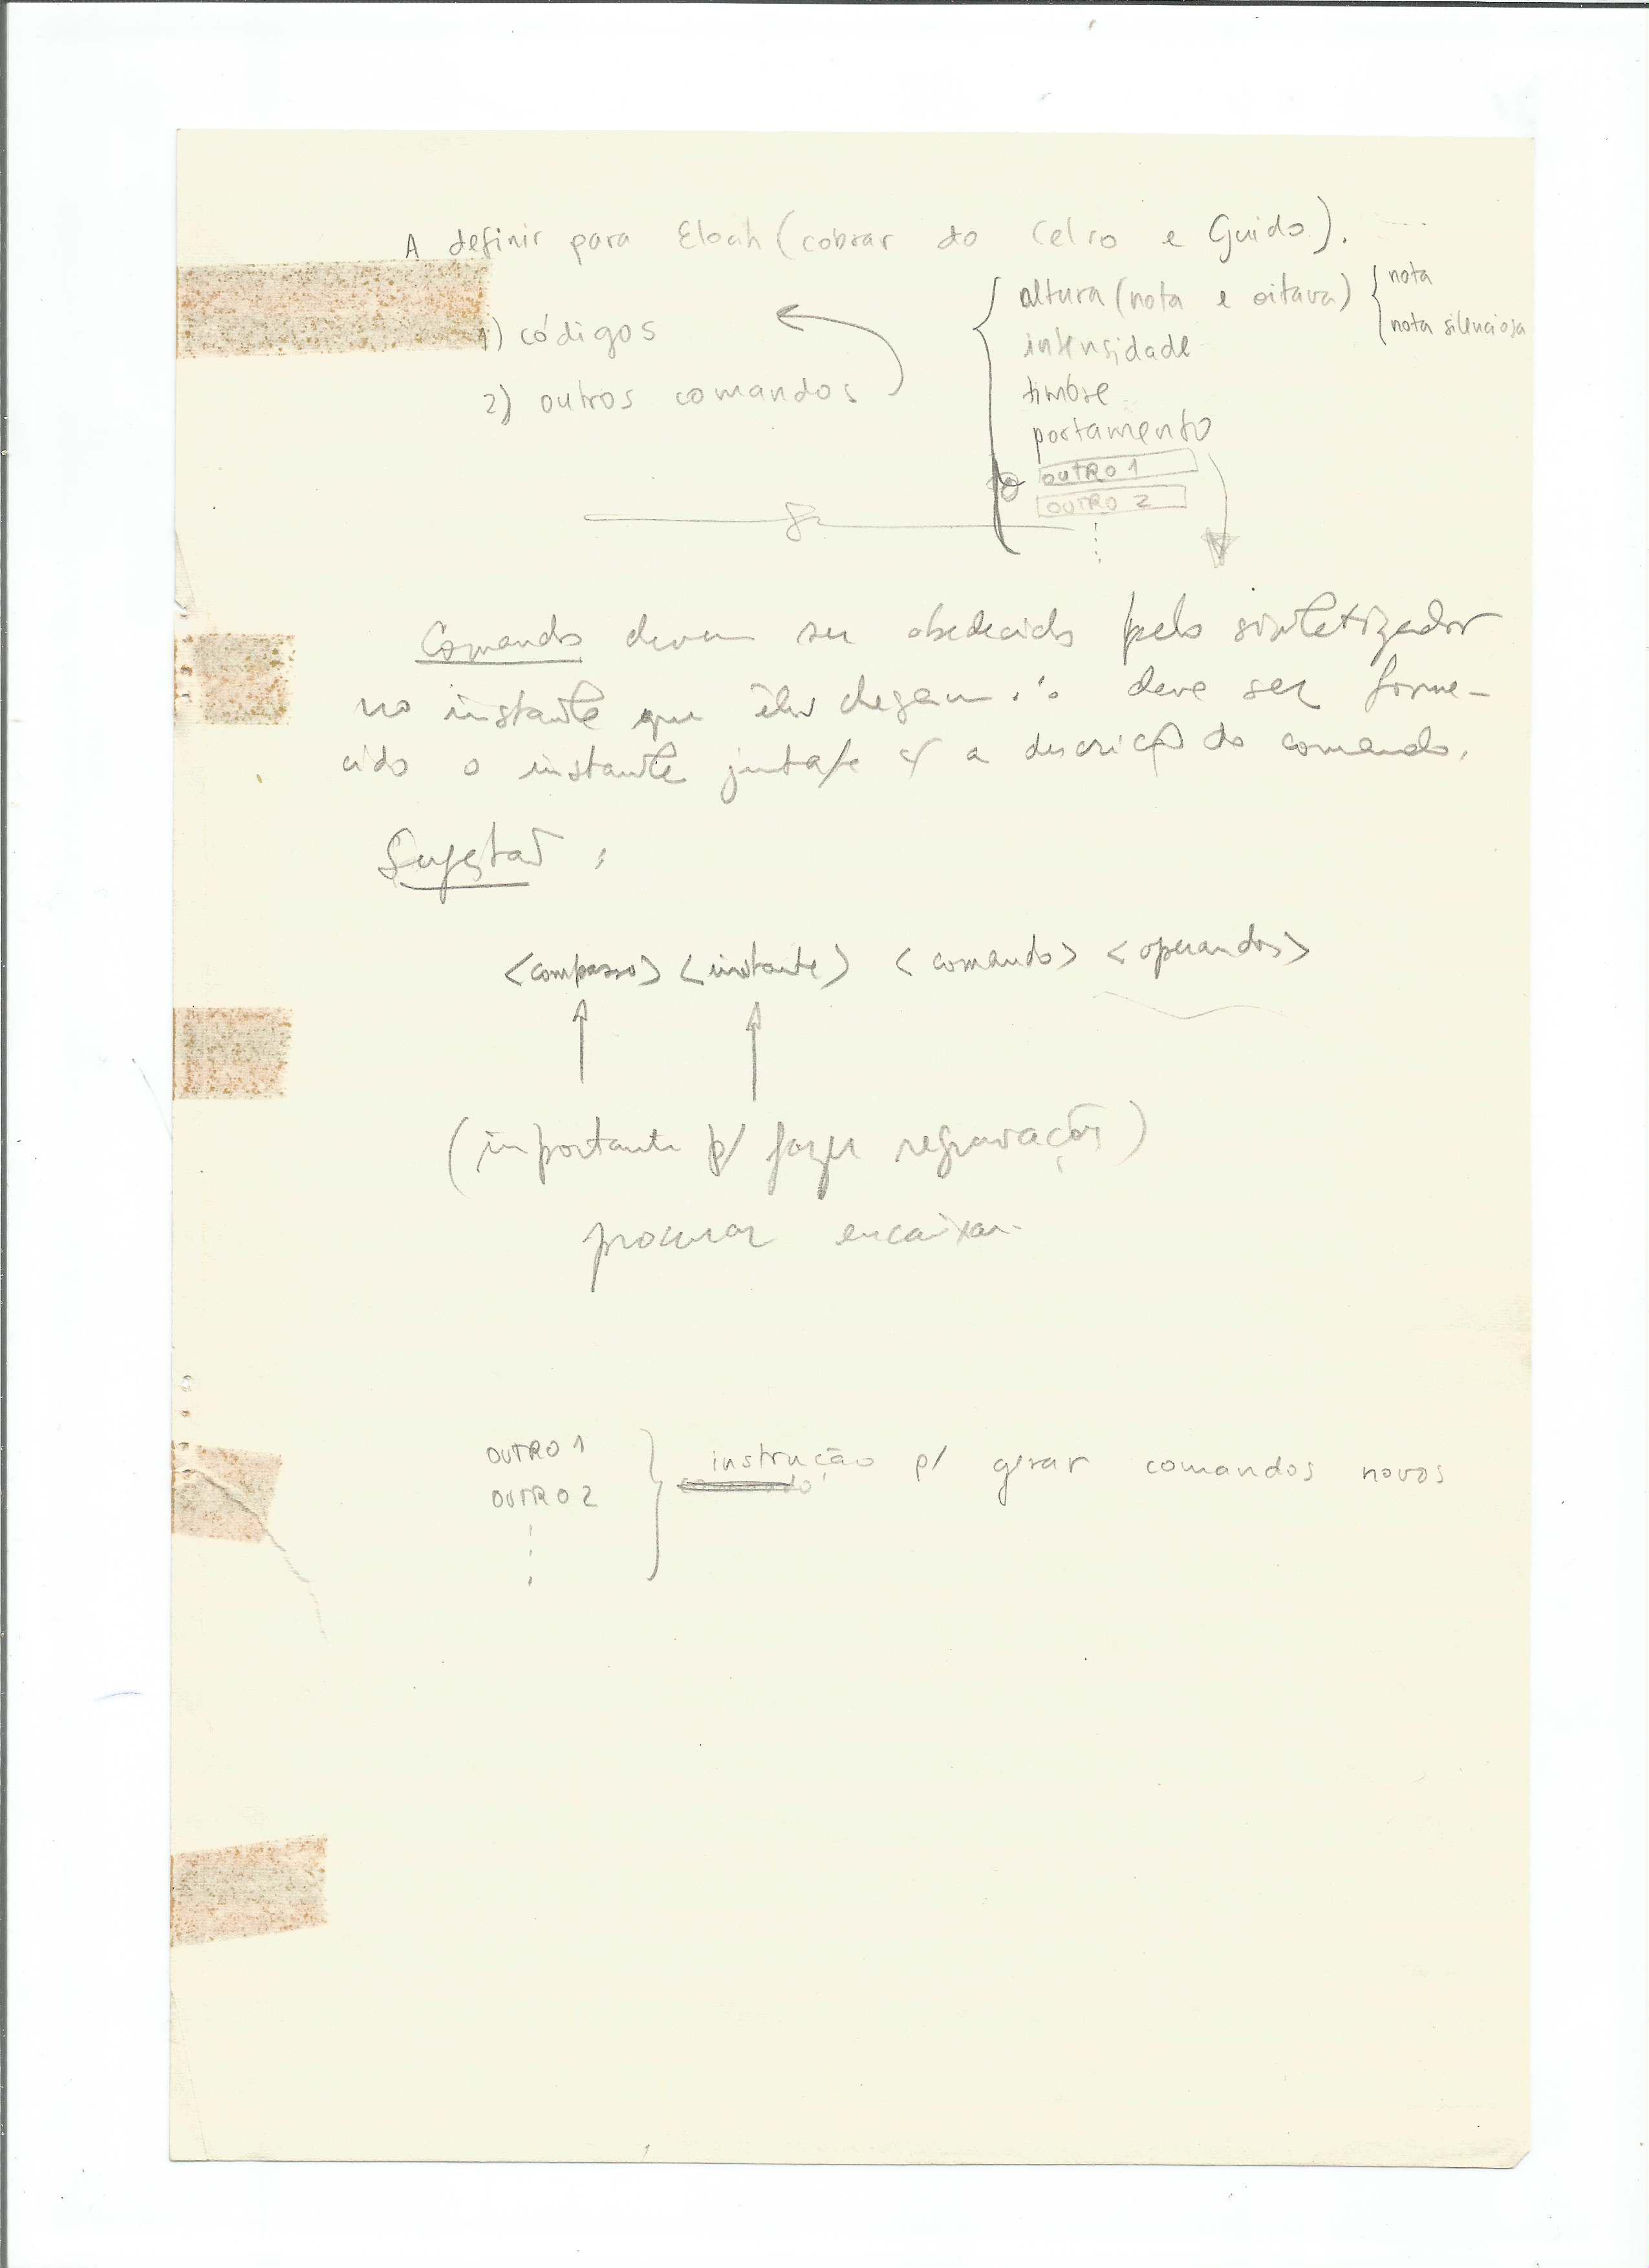 A definir para Eloah (cobrar do Celso e Guido).
1) códigos
2) outros comandos
altura (nota e oitava)
nota
nota silenciosa
intensidade
timbre
portamento
OUTRO 1
OUTRO 2
Comandos devem ser obedecidos pelo sintetizador
no instante que eles chegam ∴ deve ser forne-
cido o instante junta/e c/ a descrição do comando.
Sugestão:
<compasso> <instante> <comando> <operandos>
(importante p/ fazer regravações)
procurar encaixar
OUTRO 1
OUTRO 2
instrução p/ gerar comandos novos
comando